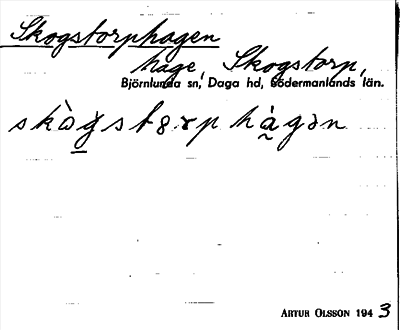 Skogstorphagen
hage, Skogstorp,
Björnlunda sn, Daga hd, Södermanlands län.
skòg̱stɷrp hà̰gən
ARTUR OLSSON 1943